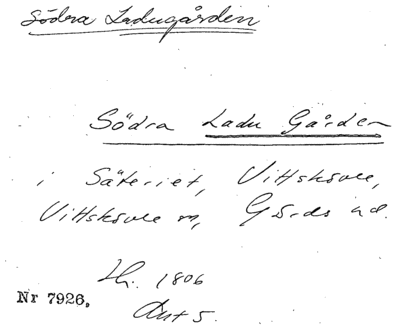 Södra Ladugården
Södra Ladu Gården
i Säteriet, Vittskövle,
Vittskövle sn, Gärds hd.
1806
Nr 7926.
Akt 5.